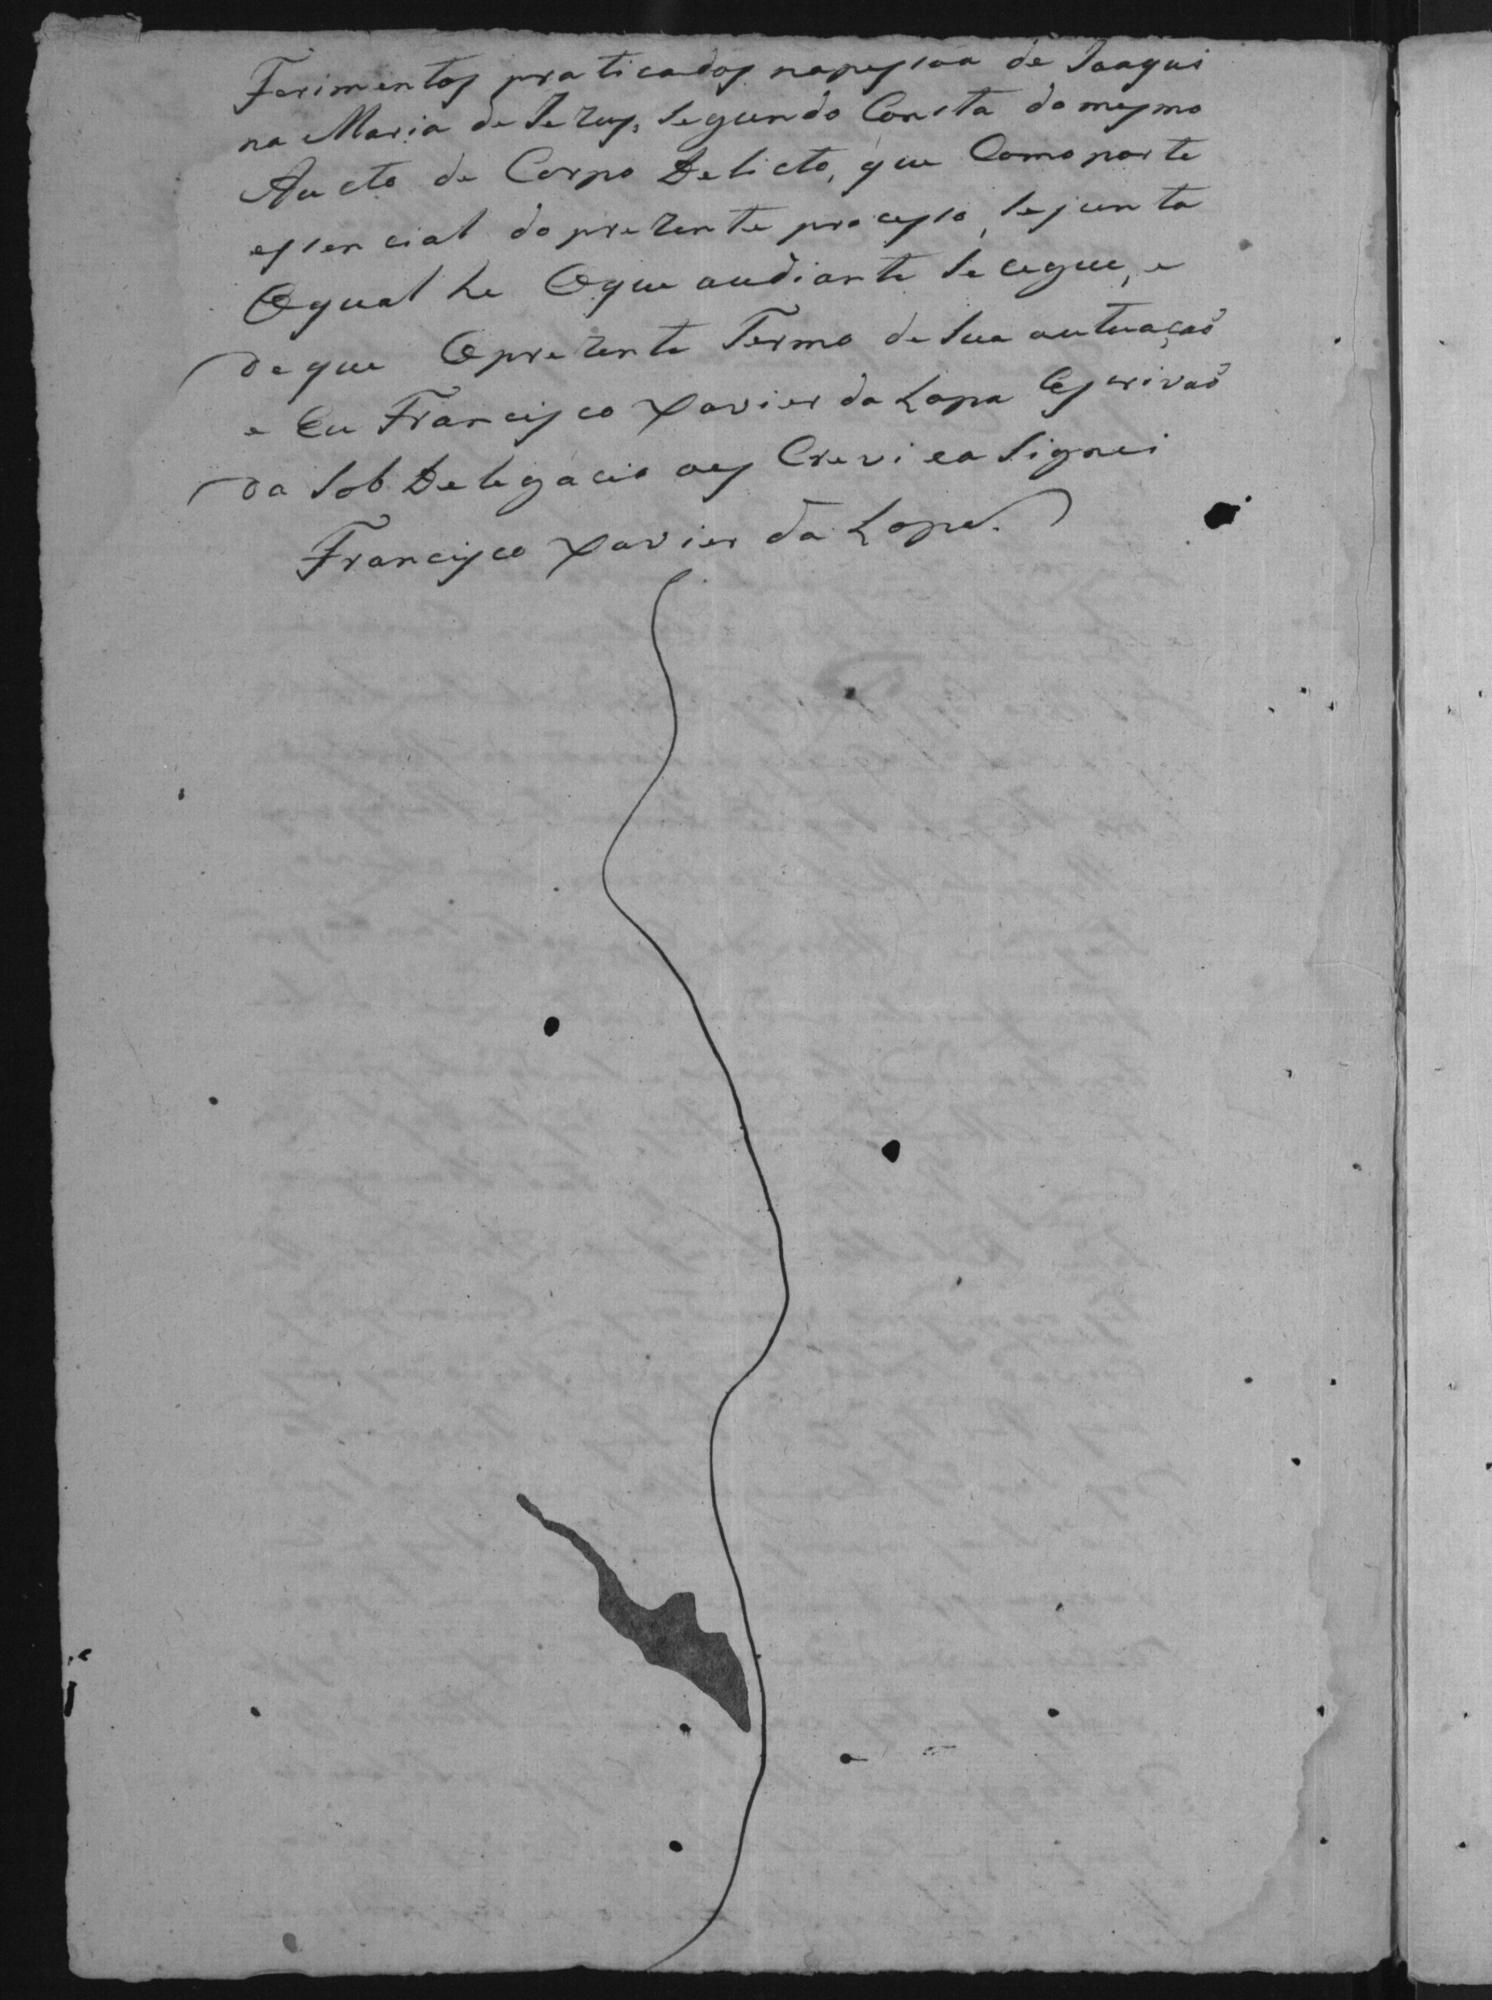 Ferimentos praticados napessoa de Joaqui
na Maria de Jezus, segundo Consta do mesmo
Aucto de Corpo Delicto, que Como parte
essencial do prezente processo, se junta
O qual he O que audiante se cegue, e
de que O prezente Termo de sua autuação
e Eu Francisco Xavier da Lapa Escrivaõ
da Sob Delegacia o es Crevi e a Signei
Francisco Xavier da Lapa.